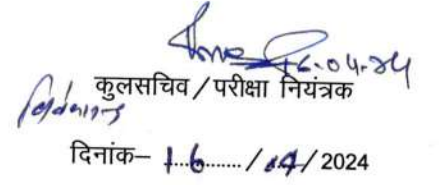 16.04.24
कुलसचिव / परीक्षा नियंत्रक
दिनांक– 16 / 04 / 2024